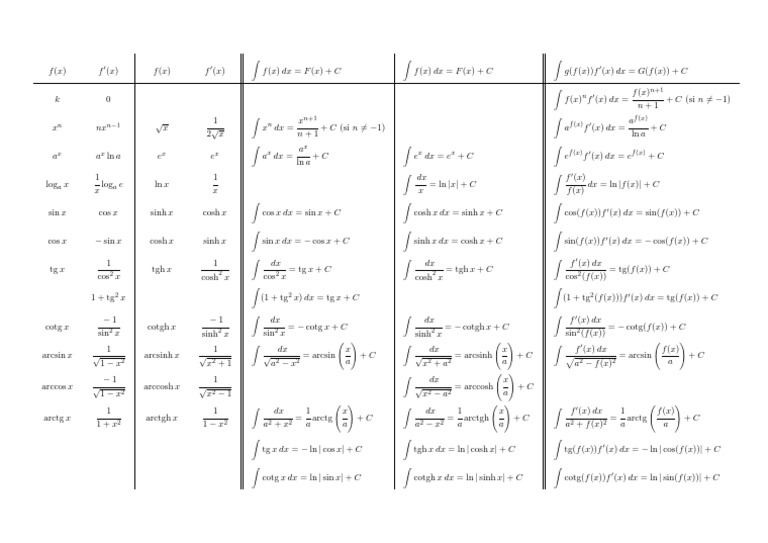 f(x) f′(x) f(x) f′(x) ∫ f(x) dx = F(x) + C ∫ f(x) dx = F(x) + C ∫ g(f(x))f′(x) dx = G(f(x)) + C
k 0 ∫ f(x)ⁿ f′(x) dx = f(x)ⁿ⁺¹/(n + 1) + C (si n ≠ −1)
xⁿ nxⁿ⁻¹ √x 1/(2√x) ∫ xⁿ dx = xⁿ⁺¹/(n + 1) + C (si n ≠ −1) ∫ a^{f(x)} f′(x) dx = a^{f(x)}/(ln a) + C
aˣ aˣ ln a eˣ eˣ ∫ aˣ dx = aˣ/(ln a) + C ∫ eˣ dx = eˣ + C ∫ e^{f(x)} f′(x) dx = e^{f(x)} + C
logₐ x (1/x) logₐ e ln x 1/x ∫ dx/x = ln |x| + C ∫ f′(x)/f(x) dx = ln |f(x)| + C
sin x cos x sinh x cosh x ∫ cos x dx = sin x + C ∫ cosh x dx = sinh x + C ∫ cos(f(x))f′(x) dx = sin(f(x)) + C
cos x − sin x cosh x sinh x ∫ sin x dx = − cos x + C ∫ sinh x dx = cosh x + C ∫ sin(f(x))f′(x) dx = − cos(f(x)) + C
tg x 1/(cos² x) tgh x 1/(cosh² x) ∫ dx/(cos² x) = tg x + C ∫ dx/(cosh² x) = tgh x + C ∫ f′(x) dx/(cos²(f(x))) = tg(f(x)) + C
1 + tg² x ∫ (1 + tg² x) dx = tg x + C ∫ (1 + tg²(f(x)))f′(x) dx = tg(f(x)) + C
cotg x −1/(sin² x) cotgh x −1/(sinh² x) ∫ dx/(sin² x) = − cotg x + C ∫ dx/(sinh² x) = − cotgh x + C ∫ f′(x) dx/(sin²(f(x))) = − cotg(f(x)) + C
arcsin x 1/√(1 − x²) arcsinh x 1/√(x² + 1) ∫ dx/√(a² − x²) = arcsin (x/a) + C ∫ dx/√(x² + a²) = arcsinh (x/a) + C ∫ f′(x) dx/√(a² − f(x)²) = arcsin (f(x)/a) + C
arccos x −1/√(1 − x²) arccosh x 1/√(x² − 1) ∫ dx/√(x² − a²) = arccosh (x/a) + C
arctg x 1/(1 + x²) arctgh x 1/(1 − x²) ∫ dx/(a² + x²) = (1/a) arctg (x/a) + C ∫ dx/(a² − x²) = (1/a) arctgh (x/a) + C ∫ f′(x) dx/(a² + f(x)²) = (1/a) arctg (f(x)/a) + C
∫ tg x dx = − ln | cos x| + C ∫ tgh x dx = ln | cosh x| + C ∫ tg(f(x))f′(x) dx = − ln | cos(f(x))| + C
∫ cotg x dx = ln | sin x| + C ∫ cotgh x dx = ln | sinh x| + C ∫ cotg(f(x))f′(x) dx = ln | sin(f(x))| + C